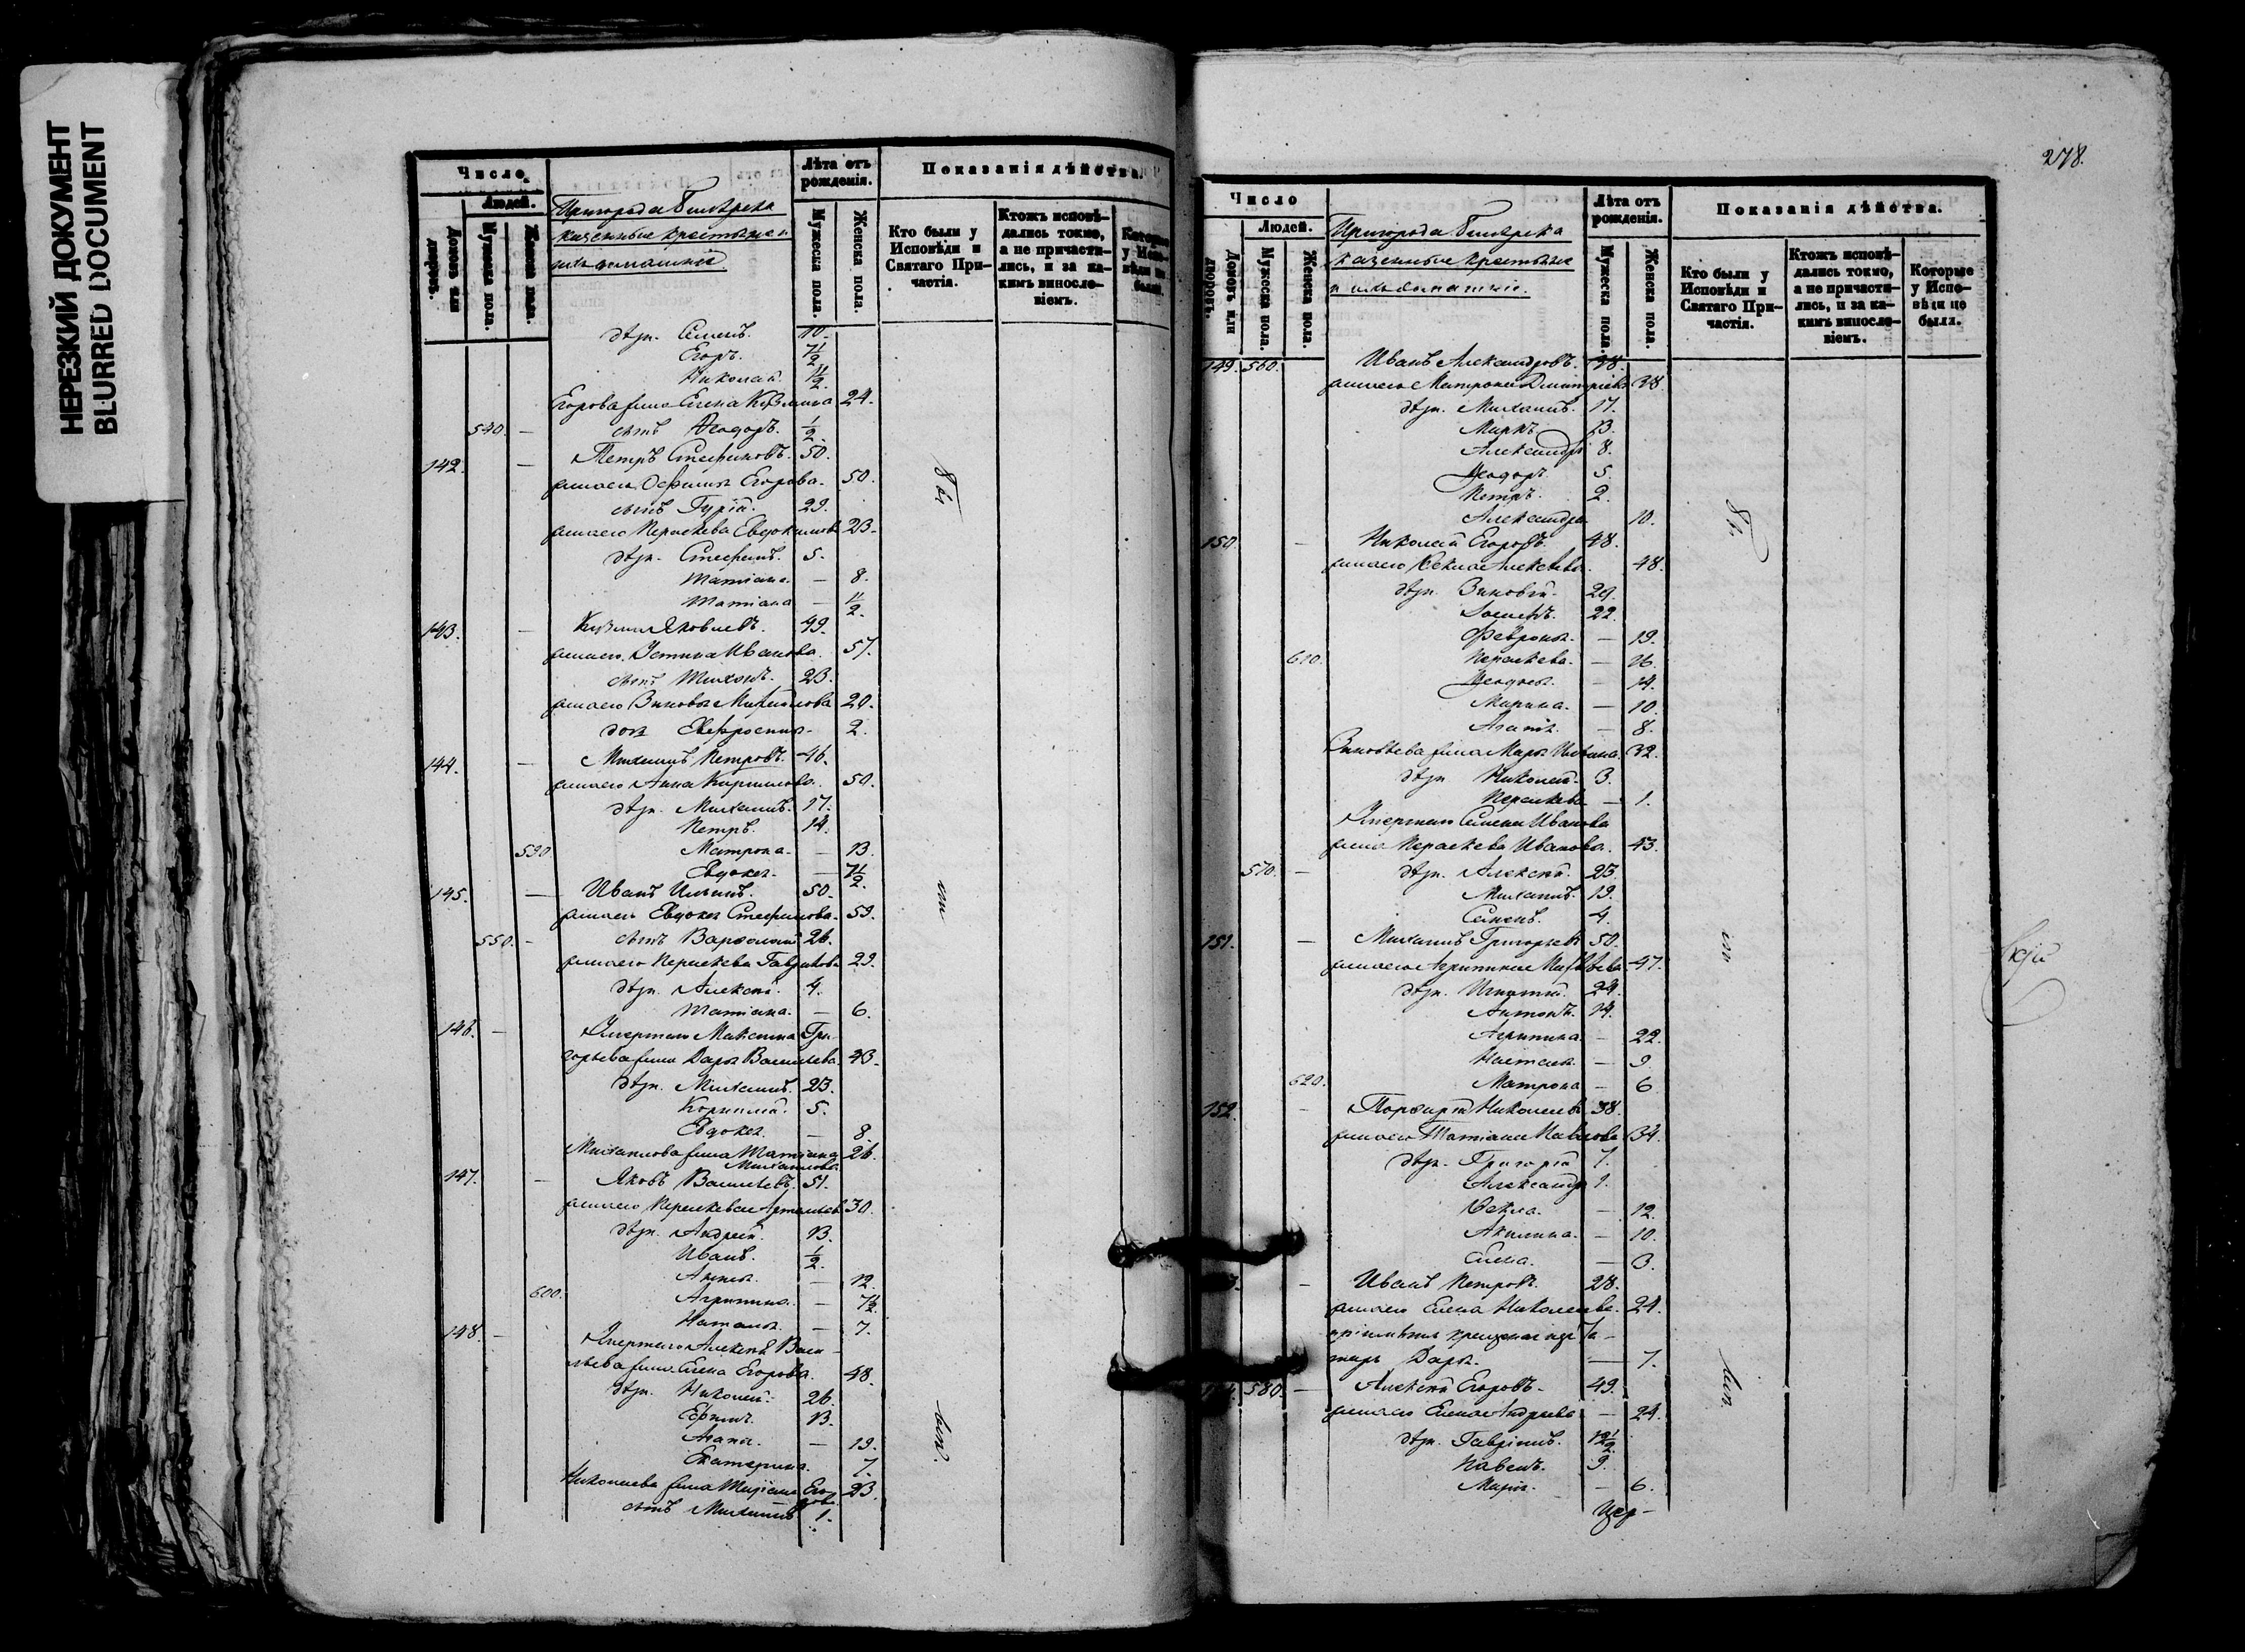 НЕРЕЗКИЙ ДОКУМЕНТ
BLURRED DOCUMENT
Число
Людей.
Домовъ или дворовъ.
Мужеска пола.
Женска пола.
Пригорода Билярска
казенные крестьяне и
ихъ домашніе.
Лѣта отъ рожденія.
Мужеска пола.
Женска пола.
Показанія дѣйства.
Кто были у Исповѣди и Святаго Причастія.
Ктожъ исповѣдались токмо, а не причастились, и за какимъ винословіемъ.
Которые у Исповѣди не были.
дѣти. Семенъ. 10.
Егоръ. 7 1/2
Николай. 1 1/2
Егорова жена Елена Кузмина 24.
540. — сынъ Ѳеодоръ. 1/2
142. — Петръ Стефановъ. 50.
жена его Егорова. 50.
сынъ Гурій. 29.
жена его Параскева Евдокимова 23.
дѣти. Стефанъ. 5.
Татіана. — 8.
Татіана — 1 1/2
143. — Кузма Яковлевъ. 49.
жена его Устина Иванова. 57.
сынъ Тихонъ. 23.
жена его 20.
дочь Евфросинія. 2.
144. — Михаилъ Петровъ. 46.
жена его Анна Кирилова. 50.
дѣти. Михаилъ. 17.
Петръ. 14.
590 Матрона. — 13.
Евдокія. — 7 1/2
145. — Иванъ Ильинъ. 50.
жена его Евдокія Стефанова. 59.
550. — сынъ Варѳоломей 26.
жена его Параскева Гаврилова 29.
дѣти. Алексѣй. 4.
Татіана. — 6.
146. — Умершаго Максима Гри-
горьева жена Дарья Васильева. 43.
дѣти. Михаилъ. 23.
Корнилій. 5.
Евдокія. — 8.
Михаилова жена Татіана 26.
Михаилова
147. — Яковъ Васильевъ. 51.
жена его Параскева 30.
дѣти. Андрей. 13.
Иванъ. 1/2
Анна. — 12.
600. Агрипина. — 7 1/2
Наталья. — 7.
148. — Умершаго Алексѣя Васи-
льева жена Елена Егорова. 48.
дѣти. Николай. 26.
13.
— 19.
Екатерина. 7.
Николаева жена Его- 23.
рова
сынъ Михаилъ 1.
278.
Число
Людей.
Домовъ или дворовъ.
Мужеска пола.
Женска пола.
Пригорода Билярска
казенные крестьяне
и ихъ домашніе.
Лѣта отъ рожденія.
Мужеска пола.
Женска пола.
Показанія дѣйства.
Кто были у Исповѣди и Святаго Причастія.
Ктожъ исповѣдались токмо, а не причастились, и за какимъ винословіемъ.
Которые у Исповѣди не были.
149. 560. Иванъ Александровъ. 48.
жена его Матрона Дмитріева 38.
дѣти. Михаилъ. 17.
Маркъ. 13.
Александръ 8.
Ѳеодоръ. 5.
Петръ. 2.
Александра 10.
150. — Николай Егоровъ. 48.
жена его Ѳекла Алексѣева. 48.
дѣти. Зиновій. 29.
22.
Февронія. — 19.
610. Параскева. — 16.
Ѳеодосія. — 14.
Марина. — 10.
8.
Зиновьева жена Марья Ильина. 32.
дѣти Николай. 3.
Параскева — 1.
Умершаго Семена Иванова
жена Параскева Иванова. 43.
570. — дѣти. Алексѣй. 23.
Михаилъ. 19.
Семенъ. 4.
151. — Михаилъ Григорьевъ 50.
жена его Агрипина 47.
дѣти. Игнатій. 24.
Антонъ. 14.
Агрипина. — 22.
Настасія. — 9.
620. Матрона — 6
152. — Порфирій Николаевъ 38.
жена его Татіана Павлова 34.
дѣти. Григорій 7.
Александръ 1.
Ѳекла. — 12.
Акилина. — 10.
Елена. — 3.
— Иванъ Петровъ. 28.
жена его Елена Николаева. 24.
крещеная изъ Та-
таръ Дарья. — 7.
580. — Алексѣй Егоровъ. 49.
жена его Елена Андреева — 24.
дѣти. Гавріилъ. 12 1/2
Павелъ. 9.
Марія. — 6.